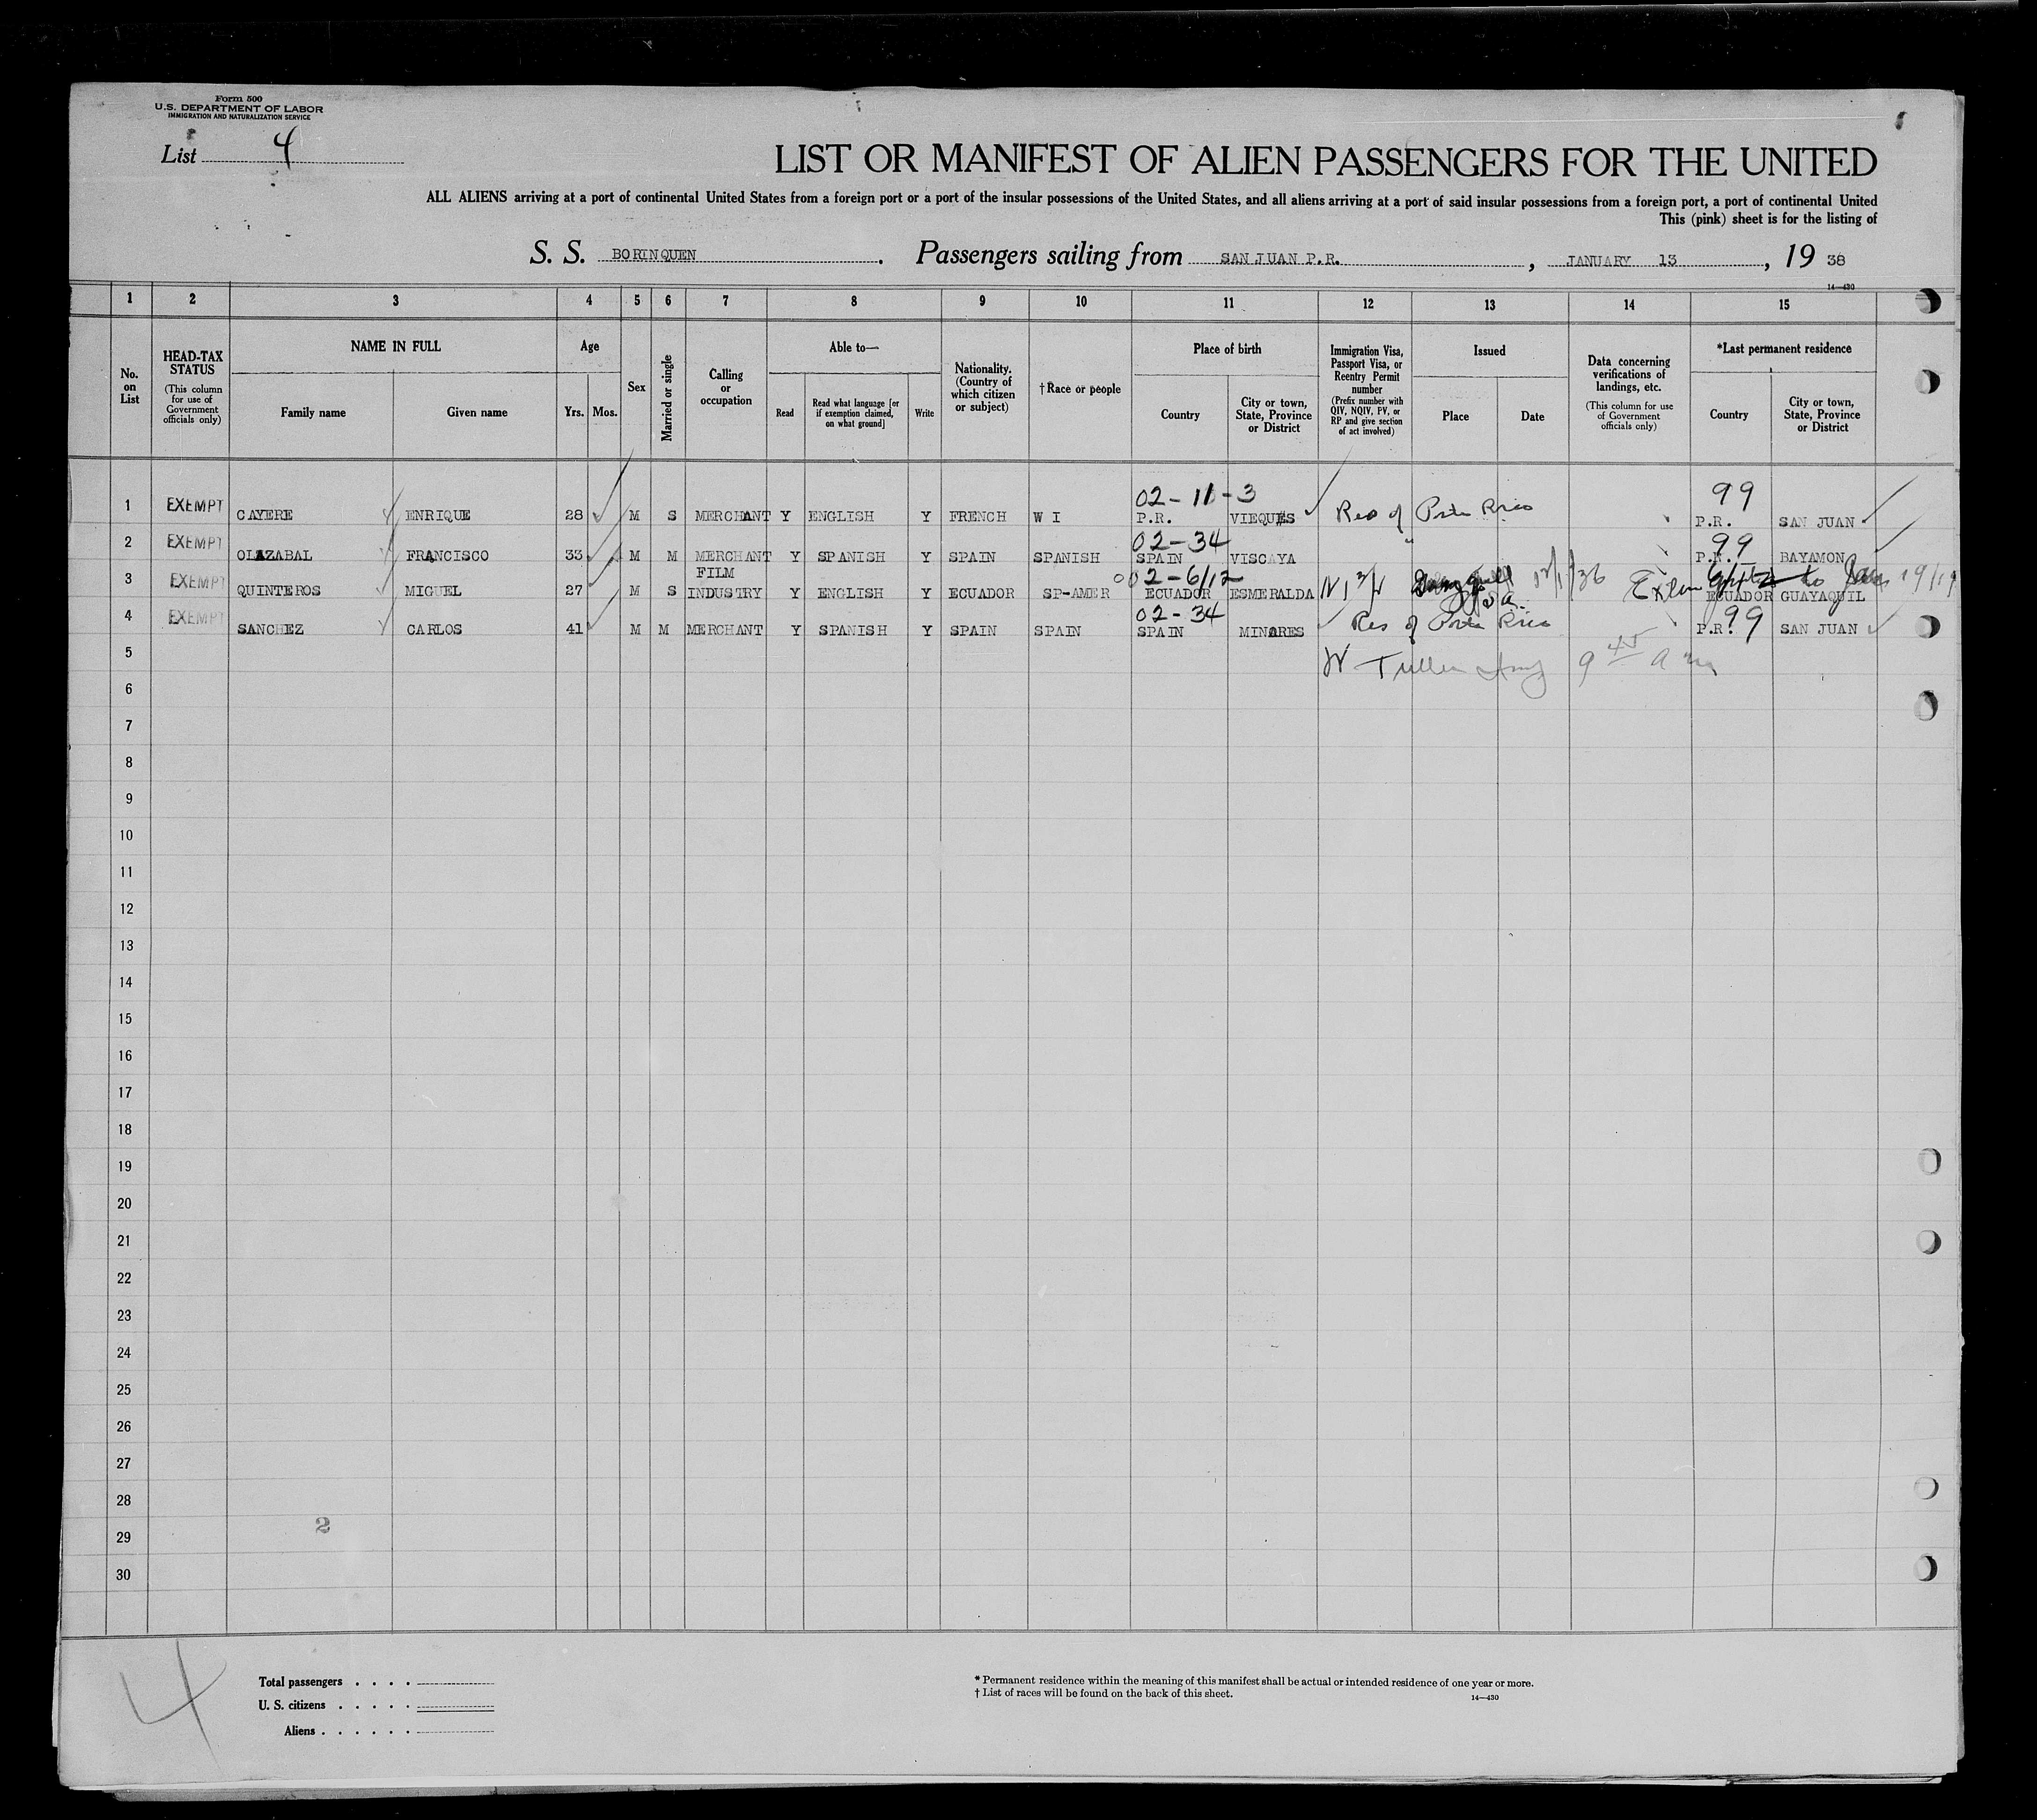 Form 500
U.S. DEPARTMENT OF LABOR
IMMIGRATION AND NATURALIZATION SERVICE
List 4
LIST OR MANIFEST OF ALIEN PASSENGERS FOR THE UNITED
ALL ALIENS arriving at a port of continental United States from a foreign port or a port of the insular possessions of the United States, and all aliens arriving at a port of said insular possessions from a foreign port, a port of continental United
This (pink) sheet is for the listing of
S. S. BORINQUEN . Passengers sailing from SAN JUAN P.R. , JANUARY 13 , 19 38
14—430
1 2 3 4 5 6 7 8 9 10 11 12 13 14 15
No. on List
HEAD-TAX STATUS
(This column for use of Government officials only)
NAME IN FULL
Family name Given name
Age
Yrs. Mos.
Sex
Married or single
Calling or occupation
Able to—
Read
Read what language [or if exemption claimed, on what ground]
Write
Nationality. (Country of which citizen or subject)
†Race or people
Place of birth
Country
City or town, State, Province or District
Immigration Visa, Passport Visa, or Reentry Permit number
(Prefix number with QIV, NQIV, PV, or RP and give section of act involved)
Issued
Place Date
Data concerning verifications of landings, etc.
(This column for use of Government officials only)
*Last permanent residence
Country
City or town, State, Province or District
02-11-3 99
1 EXEMPT CAYERE ENRIQUE 28 M S MERCHANT Y ENGLISH Y FRENCH W I P.R. VIEQUES Res of Porto Rico P.R. SAN JUAN
02-34 99
2 EXEMPT OLAZABAL FRANCISCO 33 M M MERCHANT Y SPANISH Y SPAIN SPANISH SPAIN VISCAYA " P.R. BAYAMON
02-6/12
3 EXEMPT QUINTEROS MIGUEL 27 M S FILM INDUSTRY Y ENGLISH Y ECUADOR SP-AMER ECUADOR ESMERALDA ECUADOR GUAYAQUIL
02-34 99
4 EXEMPT SANCHEZ CARLOS 41 M M MERCHANT Y SPANISH Y SPAIN SPAIN SPAIN MINARES Res of Porto Rico P.R. SAN JUAN
5
6
7
8
9
10
11
12
13
14
15
16
17
18
19
20
21
22
23
24
25
26
27
28
2
29
30
4
Total passengers . . . .
U. S. citizens . . . . .
Aliens . . . . . .
* Permanent residence within the meaning of this manifest shall be actual or intended residence of one year or more.
† List of races will be found on the back of this sheet.
14—430